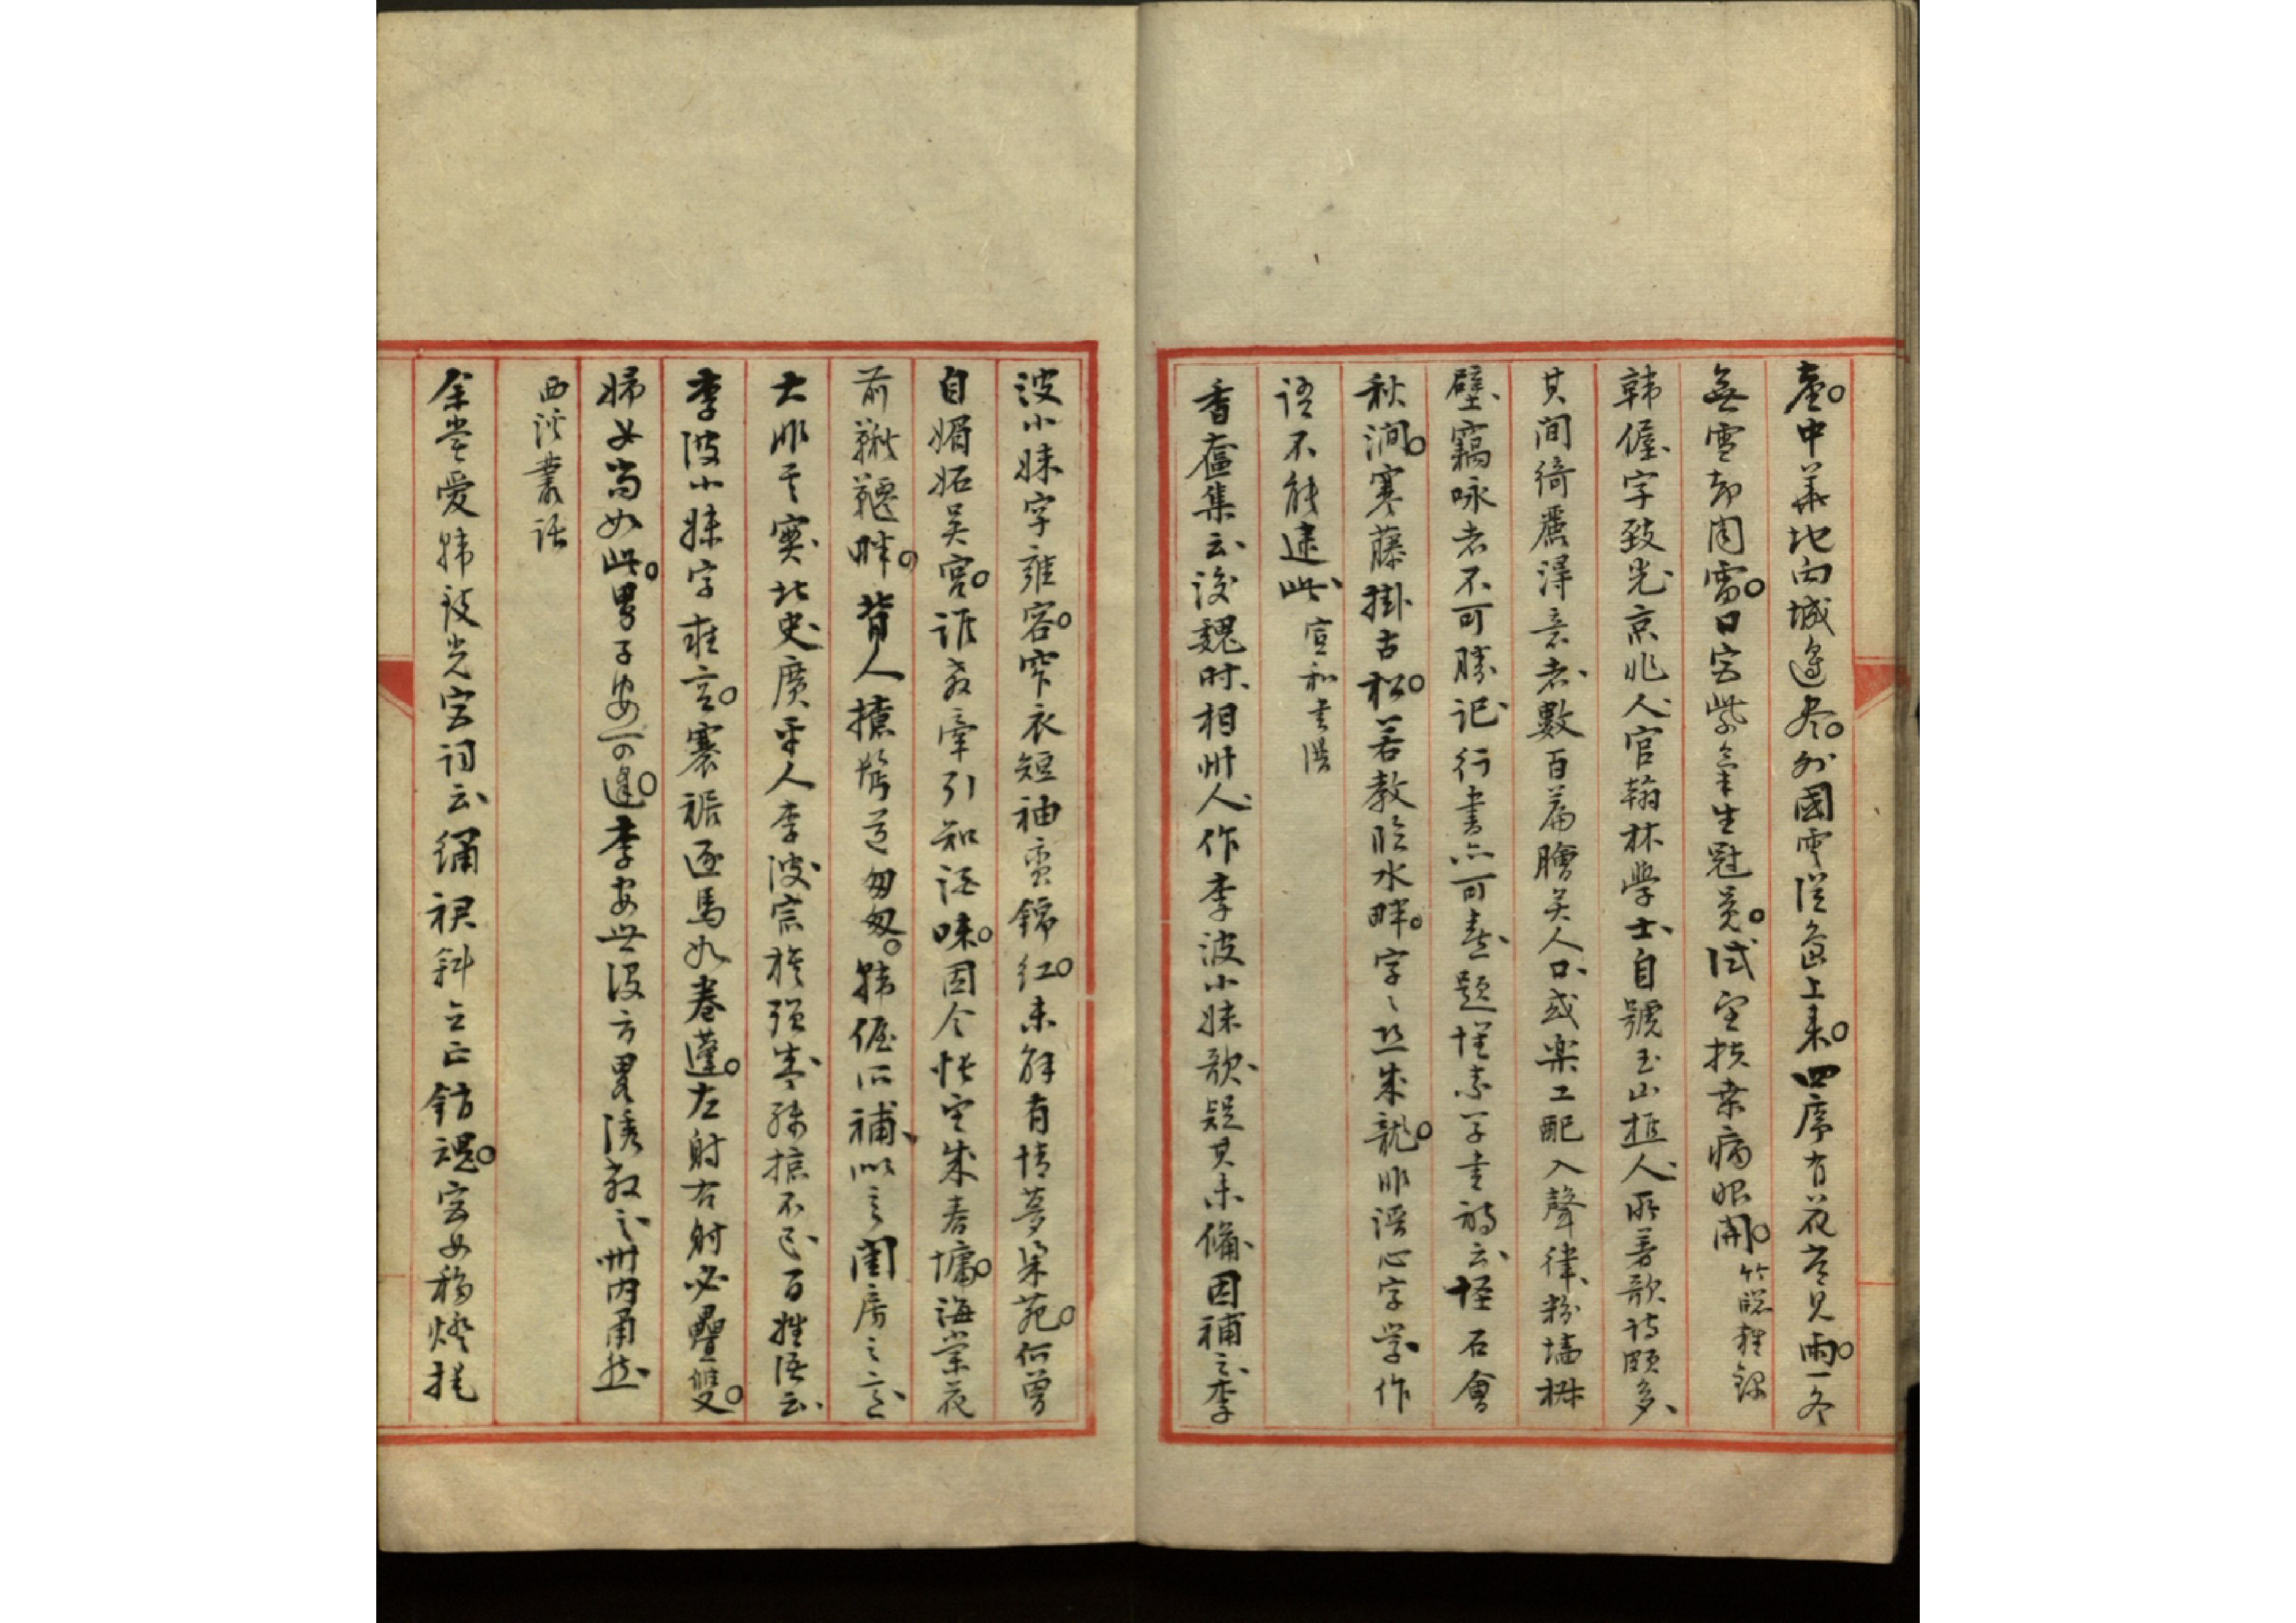 臺。中華地向城邊盡。外國雲從島上來。四序有花長見雨。一冬
無雪却聞雷。日宮紫氣生冠冕。試望扶桑病眼開。竹
韓偓、字致光、京兆人、官翰林學士、自號玉山樵人、所著歌詩頗多、
其間綺麗得意者、數百篇、膾炙人口、或樂工配入聲律、粉墻椒
壁、竊咏者不可勝記、行書亦可喜、題懷素草書詩云、怪石奔
秋澗。寒藤掛古松。若教臨水畔。字字恐成龍。非語心字學、作
語不能逮此、宣和書譜
香奩集云、後魏時、相州人、作李波小妹歌、疑其未備、因補之、李
波小妹字雍容。窄衣短袖蠻錦紅。未解有情夢梁苑。何曾
自媚妬吳宮。誰教牽引知酒味。因令悵望成春慵。海棠花
前鞦韆畔。背人撩鬢道匆匆。韓偓所補、似言閨房之意、
大非其實、北史、廣平人李波、宗族强盛、殘掠不已、百姓語云、
李波小妹字雍容。褰裙逐馬如卷蓬。左射右射必疊雙。
婦女尚如此。男子安可逢。李安世設方畧誘殺之、州內肅然、
西溪叢話
余嘗愛韓致光宮詞云、繡裙斜立正銷魂。宮女移燈掩